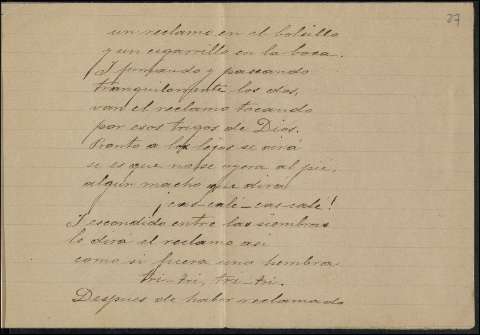 27
un reclamo en el bolsillo
y un cigarrillo en la boca.
Y fumando y paseando
tranquilamente los dos,
van el reclamo tocando
por esos trigos de Dios.
Pronto a lo lejos se oirá
si es que no se oyera al pie,
algún macho que dirá
¡cas-calé-cas-calé!
Y escondido entre las siembras
le dirá el reclamo así
como si fuera una hembra
tri-tri, tri-tri.
Después de haber reclamado